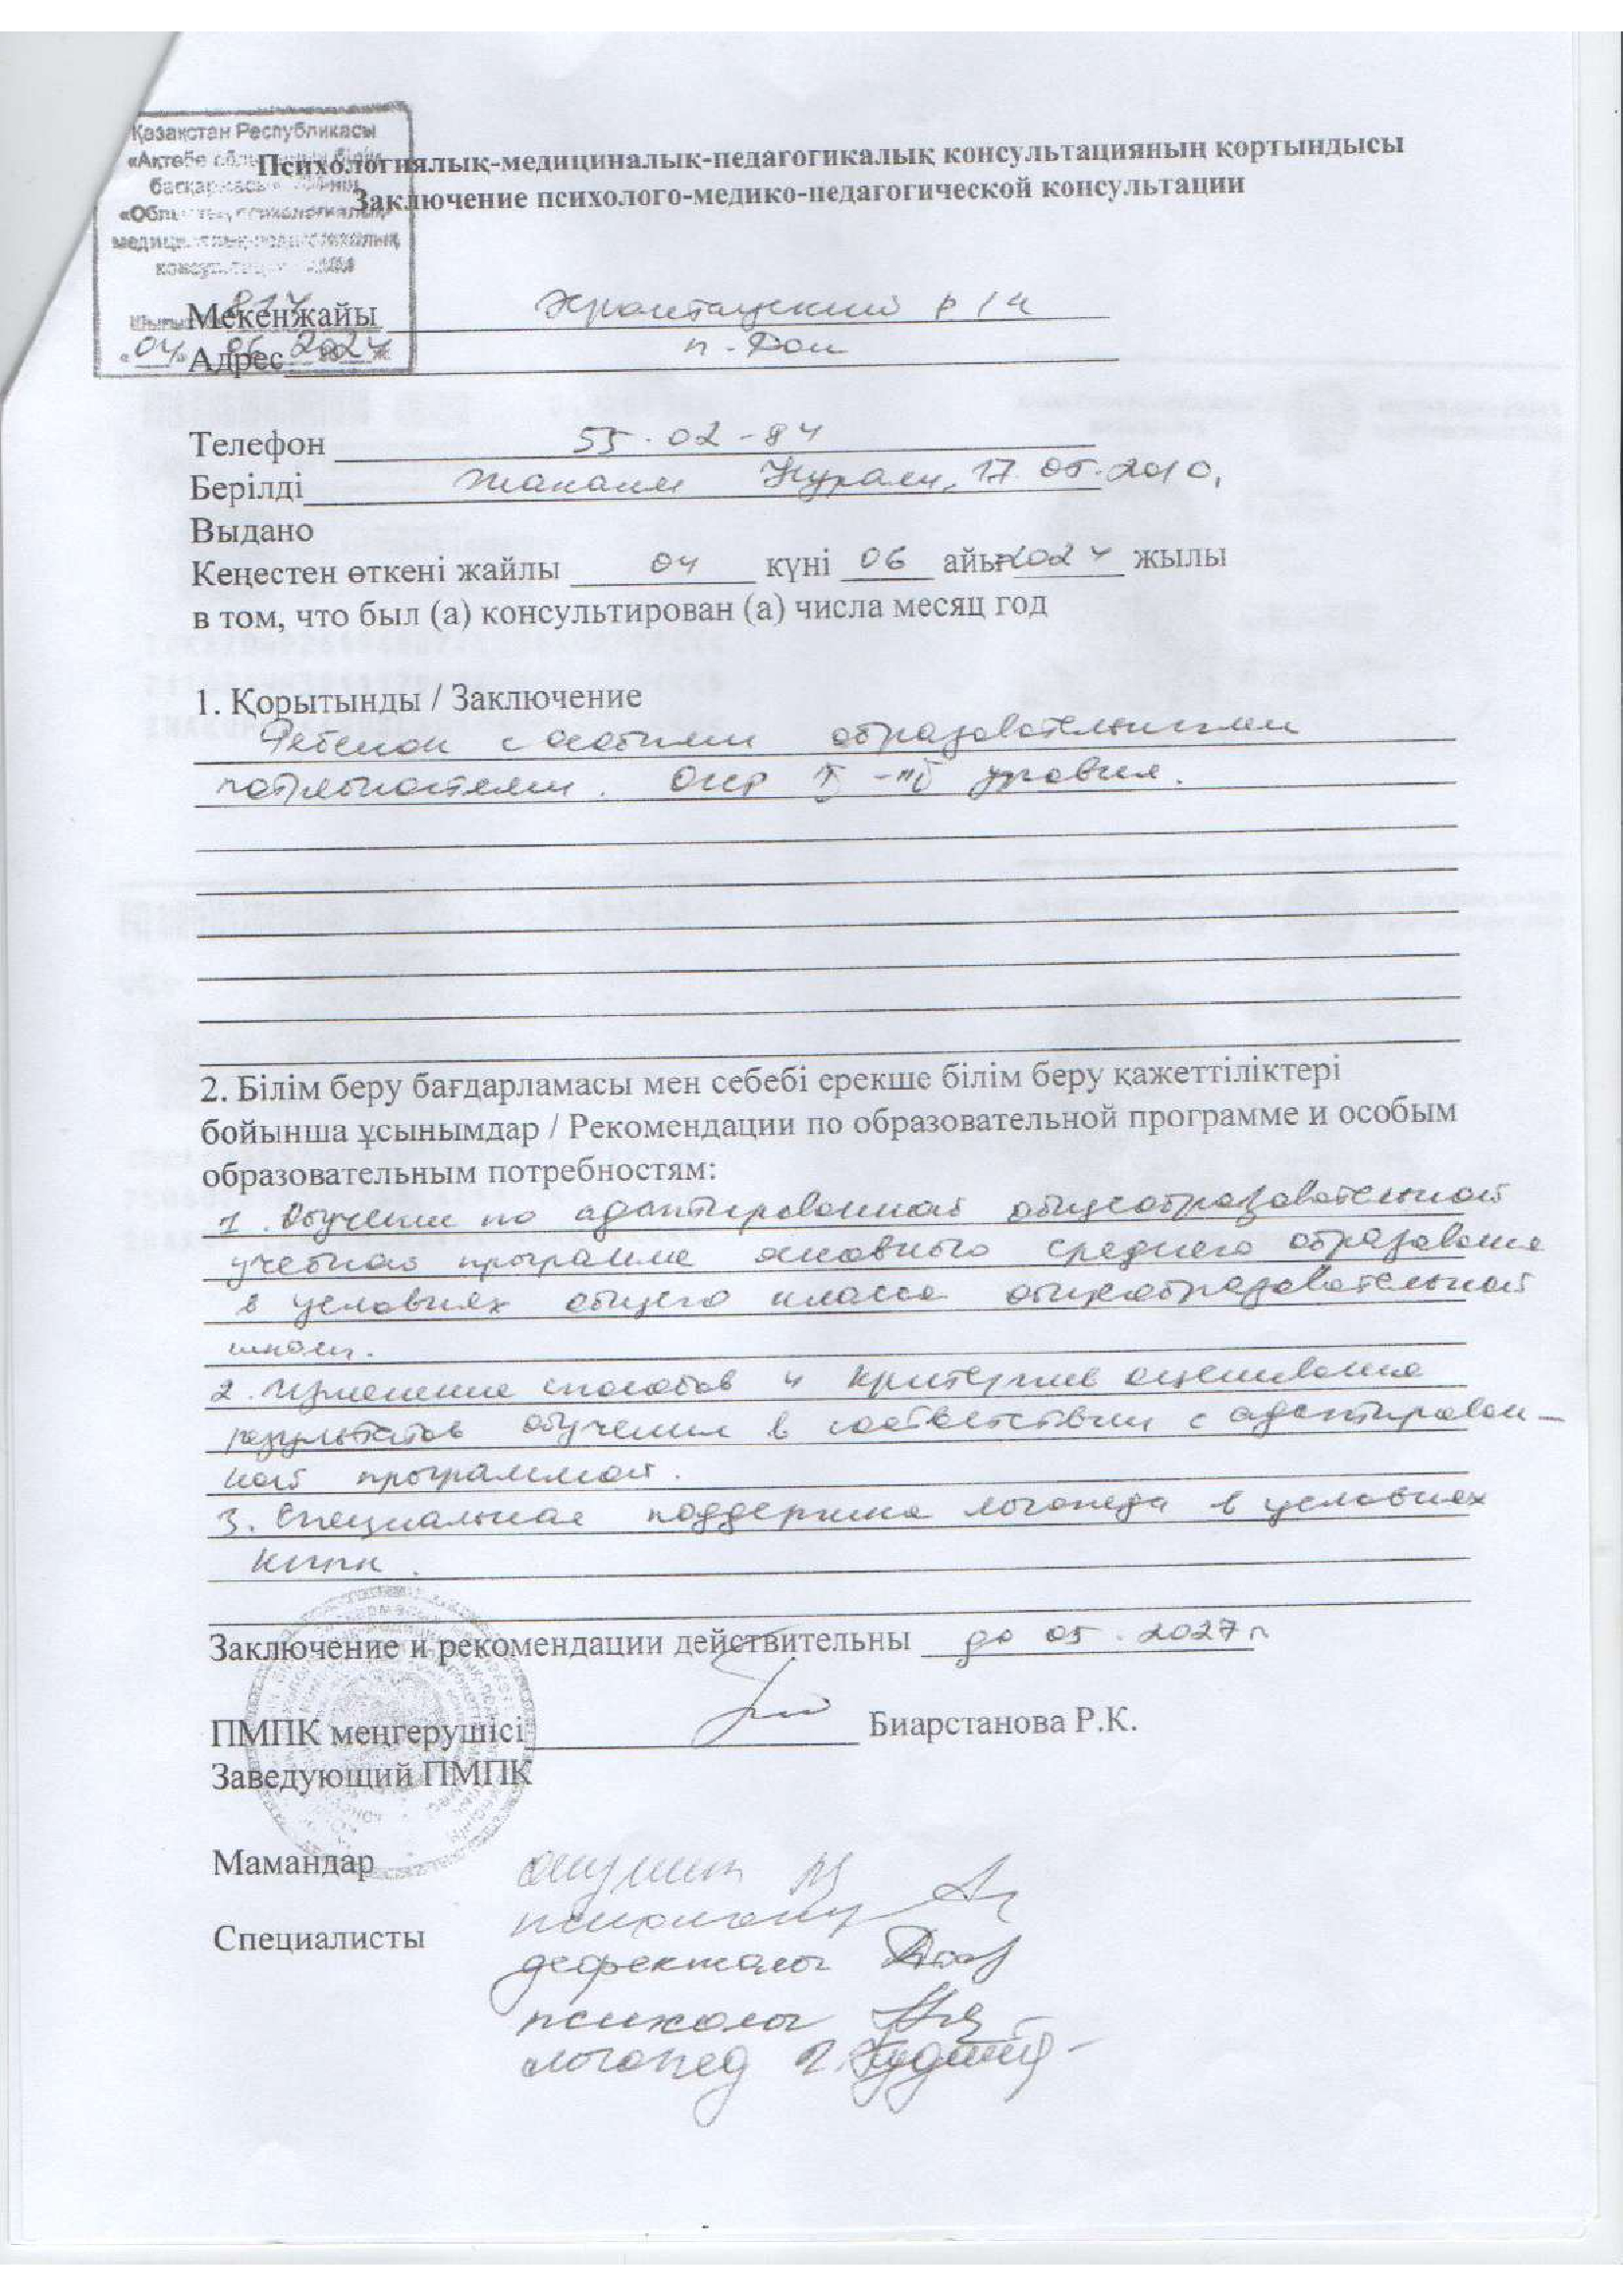 Қазақстан Республикасы
«Ақтөбе облысының білім
басқармасы» ММ-нің
«Облыстық психологиялық-
медициналық-педагогикалық
консультация» КММ
Шығыс 877
«04» 06 2024 ж
Психологиялық-медициналық-педагогикалық консультацияның қортындысы
Заключение психолого-медико-педагогической консультации
Мекенжайы Хромтауский р/н
Адрес п. Дон
Телефон 55-02-84
Берілді Нурали, 17.05.2010.
Выдано
Кеңестен өткені жайлы 04 күні 06 айы 2024 жылы
в том, что был (а) консультирован (а) числа месяц год
1. Қорытынды / Заключение
Ребенок с особыми образовательными
потребностями. ОНР уровня.
2. Білім беру бағдарламасы мен себебі ерекше білім беру қажеттіліктері
бойынша ұсынымдар / Рекомендации по образовательной программе и особым
образовательным потребностям:
1. Обучение по адаптированной общеобразовательной
учебной программе основного среднего образования
в условиях общего класса общеобразовательной
школы.
2. Изменение способов и критериев оценивания
результатов обучения в соответствии с адаптирован-
ной программой.
3. Специальная поддержка логопеда в условиях
КППК.
Заключение и рекомендации действительны до 05.2027г
ПМПК меңгерушісі Биарстанова Р.К.
Заведующий ПМПК
Мамандар
Специалисты
дефектолог
психолог
логопед